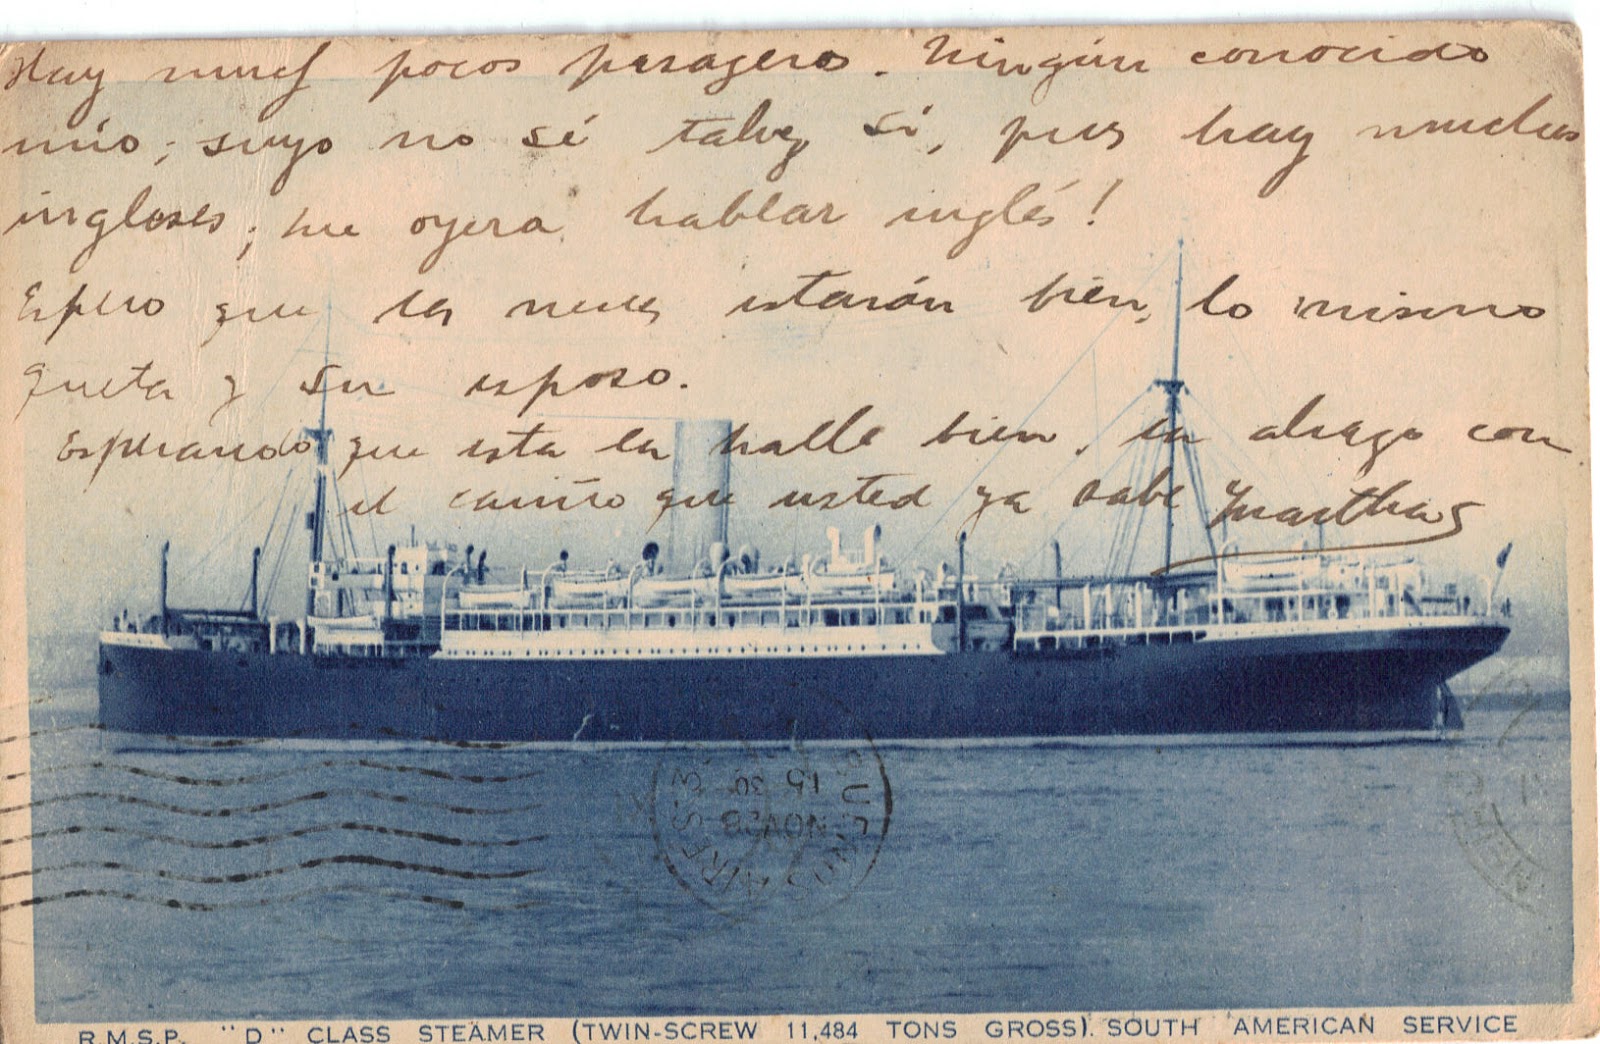 Hay muy pocos pasageros. Ningún conocido
mío; suyo no sé talvez si, pues hay muchos
ingleses; me oyera hablar inglés!
Espero que las nenes estarán bien, lo mismo
queta y su esposo.
Esperando que esta la halle bien, la abrazo con
el cariño que usted ya sabe Martha
BUENOS AIRES
NOV 28
15 30
R.M.S.P. "D" CLASS STEAMER (TWIN-SCREW 11,484 TONS GROSS). SOUTH AMERICAN SERVICE